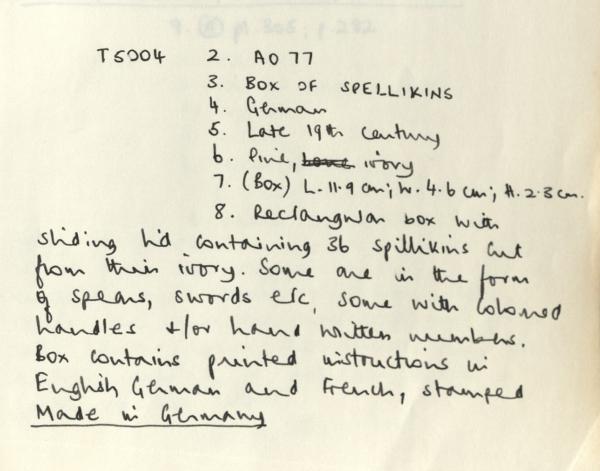 T5004 2. AO 77
3. BOX OF SPELLIKINS
4. German
5. Late 19th century
6. Pine, bone ivory
7. (Box) L. 11.9 cm; W. 4.6 cm; H. 2.3 cm.
8. Rectangular box with
sliding lid containing 36 spillikins cut
from thin ivory. Some are in the form
of spears, swords etc, some with coloured
handles +/or hand written numbers.
Box contains printed instructions in
English German and French, stamped
Made in Germany